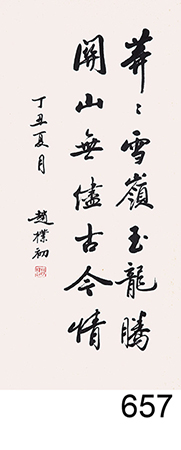 莽〻雪嶺玉龍騰
關山無儘古今情
丁丑夏月
趙樸初
657